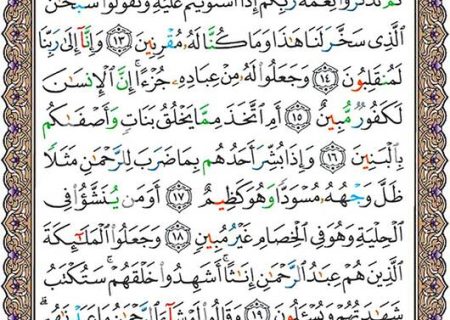 ثُمَّ تَذْكُرُوا۟ نِعْمَةَ رَبِّكُمْ إِذَا ٱسْتَوَيْتُمْ عَلَيْهِ وَتَقُولُوا۟ سُبْحَٰنَ
ٱلَّذِى سَخَّرَ لَنَا هَٰذَا وَمَا كُنَّا لَهُۥ مُقْرِنِينَ ١٣ وَإِنَّآ إِلَىٰ رَبِّنَا
لَمُنقَلِبُونَ ١٤ وَجَعَلُوا۟ لَهُۥ مِنْ عِبَادِهِۦ جُزْءًا ۚ إِنَّ ٱلْإِنسَٰنَ
لَكَفُورٌ مُّبِينٌ ١٥ أَمِ ٱتَّخَذَ مِمَّا يَخْلُقُ بَنَاتٍ وَأَصْفَىٰكُم
بِٱلْبَنِينَ ١٦ وَإِذَا بُشِّرَ أَحَدُهُم بِمَا ضَرَبَ لِلرَّحْمَٰنِ مَثَلًا
ظَلَّ وَجْهُهُۥ مُسْوَدًّا وَهُوَ كَظِيمٌ ١٧ أَوَمَن يُنَشَّؤُا۟ فِى
ٱلْحِلْيَةِ وَهُوَ فِى ٱلْخِصَامِ غَيْرُ مُبِينٍ ١٨ وَجَعَلُوا۟ ٱلْمَلَٰٓئِكَةَ
ٱلَّذِينَ هُمْ عِبَٰدُ ٱلرَّحْمَٰنِ إِنَٰثًا ۚ أَشَهِدُوا۟ خَلْقَهُمْ ۚ سَتُكْتَبُ
شَهَٰدَتُهُمْ وَيُسْـَٔلُونَ ١٩ وَقَالُوا۟ لَوْ شَآءَ ٱلرَّحْمَٰنُ مَا عَبَدْنَٰهُم ۗ